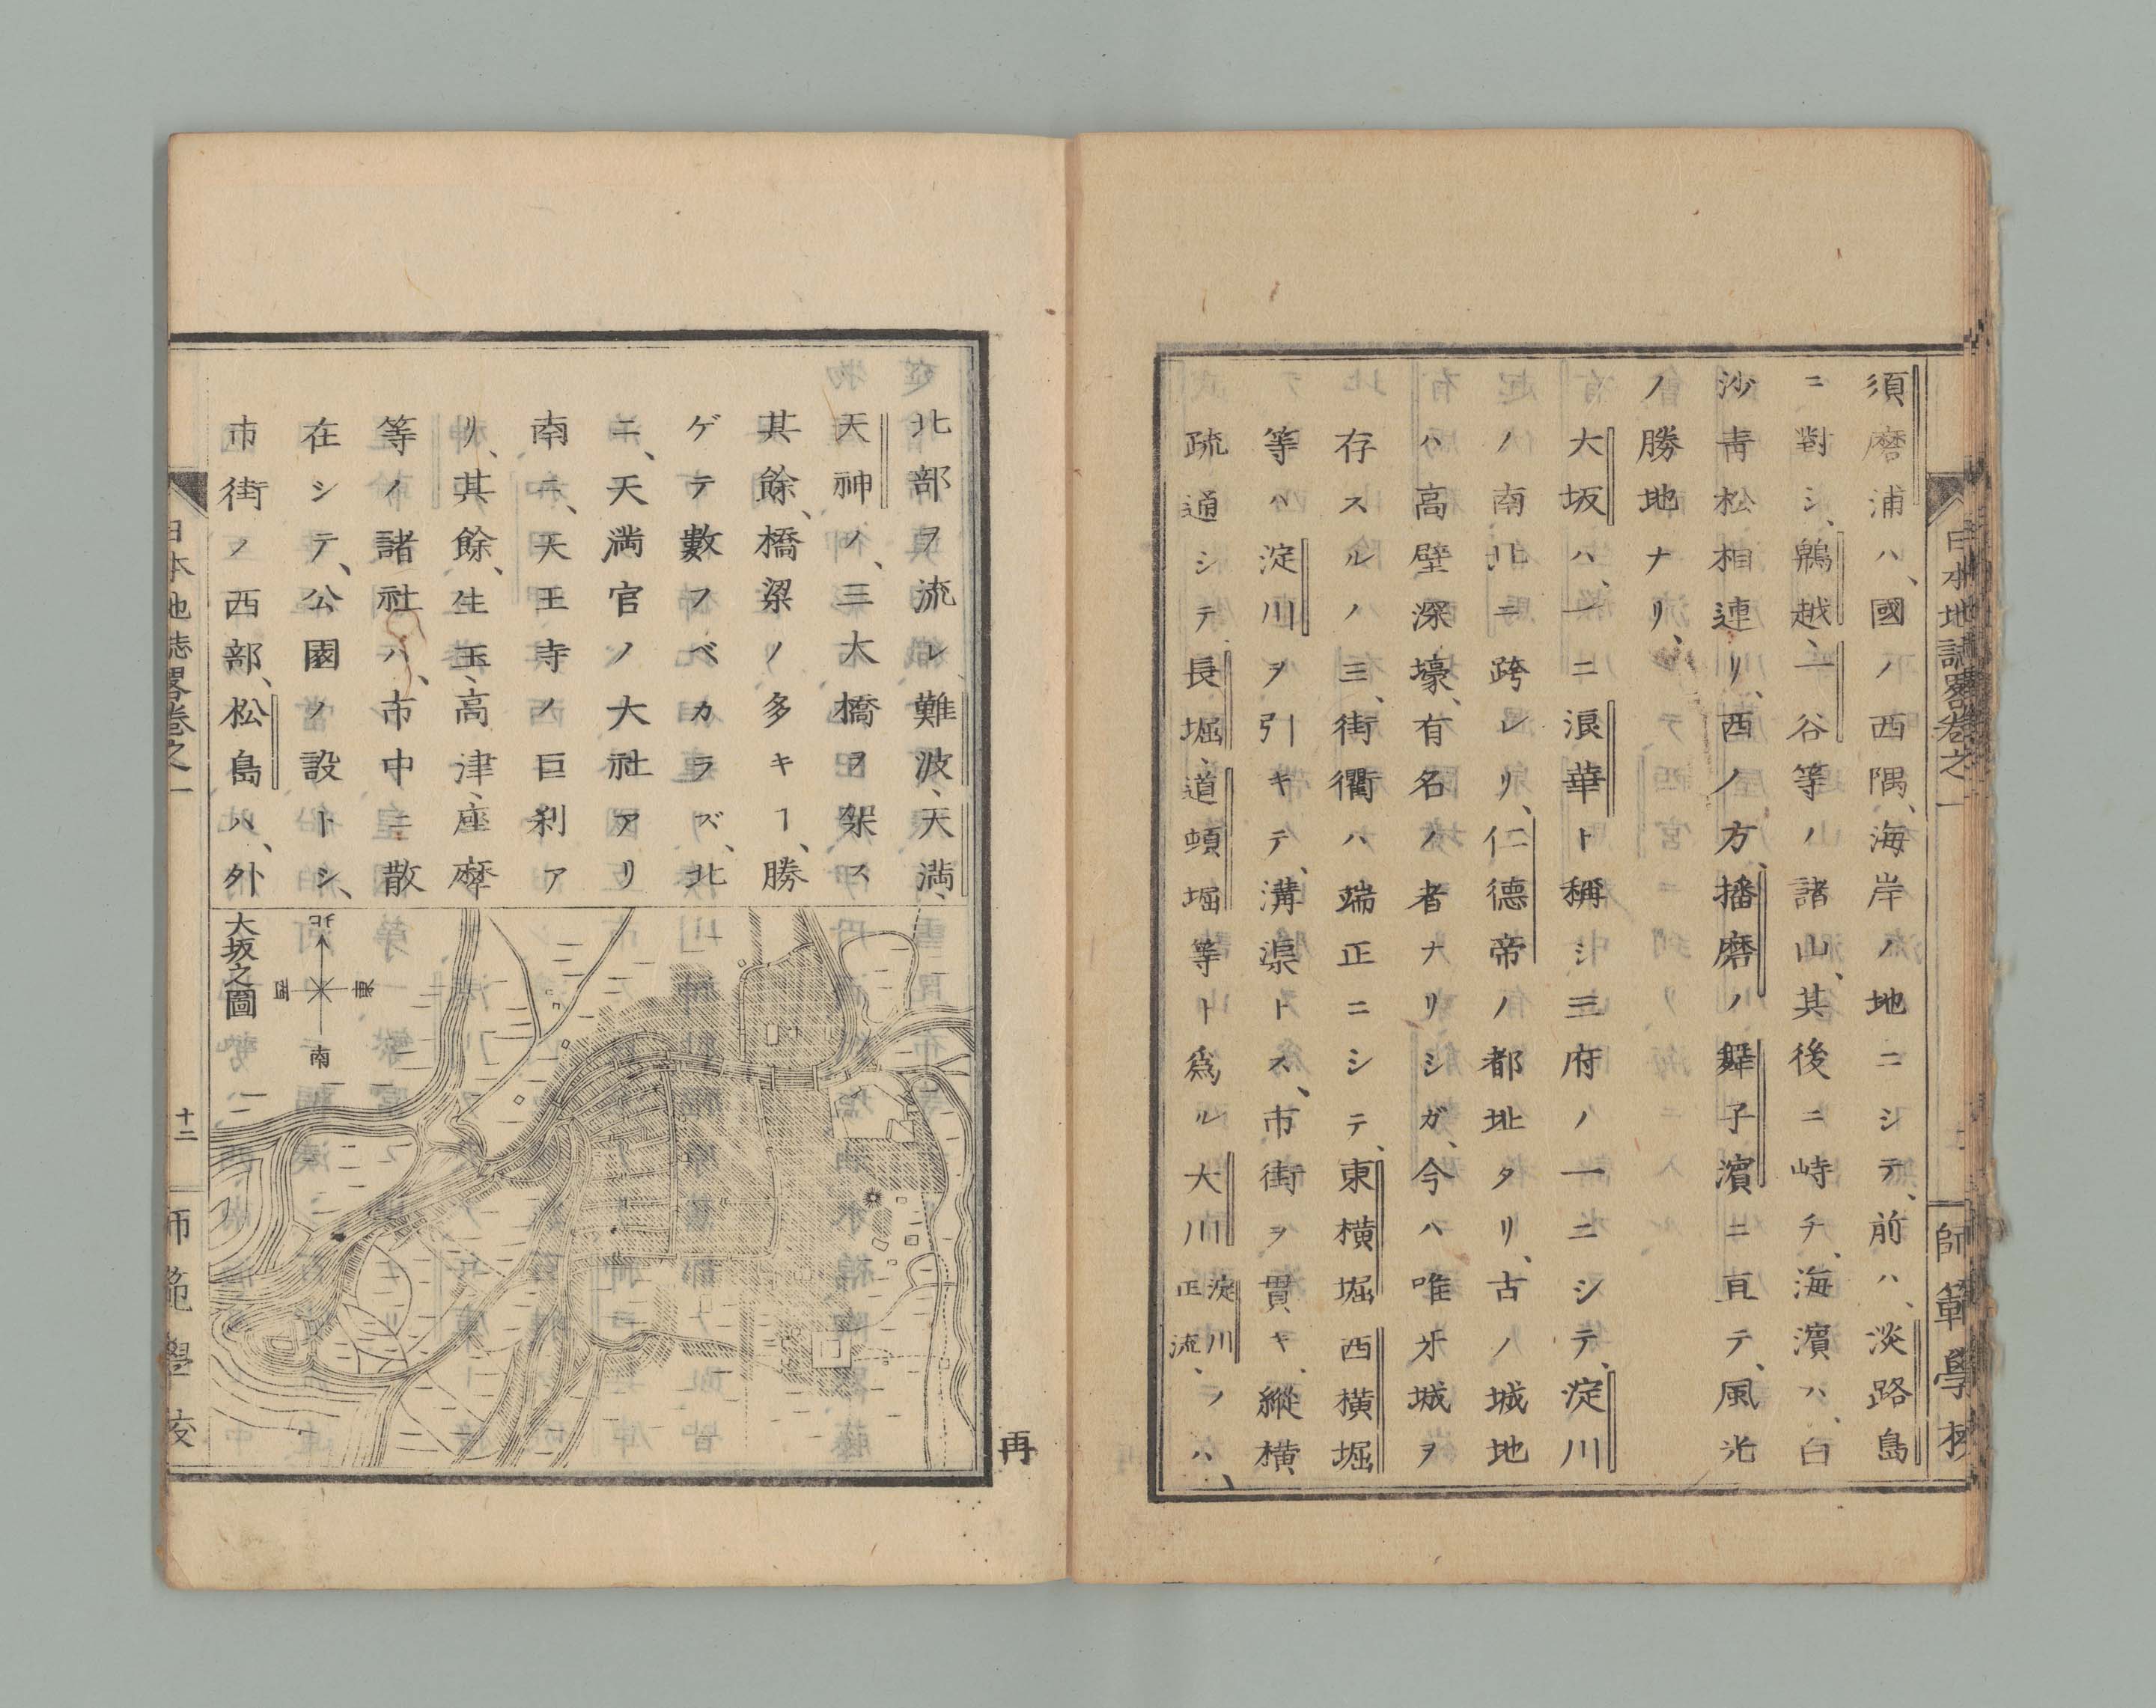 日本地誌略卷之一
師範學校
須磨浦ハ、國ノ西隅、海岸ノ地ニシテ、前ハ、淡路島
ニ對シ、鵯越、一谷等ノ諸山、其後ニ峙チ、海濱ハ、白
沙靑松相連リ、西ノ方、播磨ノ舞子濱ニ亘テ、風光
ノ勝地ナリ、
大坂ハ、一ニ浪華ト稱シ三府ノ一ニシテ、淀川
ノ南北ニ跨レリ、仁德帝ノ都址タリ、古ノ城地
ハ高壁深壕、有名ノ者ナリシガ、今ハ唯牙城ヲ
存スルノミ、街衢ハ端正ニシテ、東横堀西横堀
等ハ淀川ヲ引キテ、溝渠トス、市街ヲ貫キ、縱横
疏通シテ、長堀、道頓堀等ト爲ル大川淀川正流、ノハ、
北部ヲ流レ、難波、天滿、
天神ノ、三大橋ヲ架ス
其餘、橋梁ノ多キヿ、勝
ゲテ數フベカラズ、北
ニ、天満宮ノ大社アリ
南ニ、天王寺ノ巨刹ア
リ、其餘、生玉、高津、座摩
等ノ諸社ハ、市中ニ散
在シテ、公園ノ設トシ、
市街ノ西部、松島ハ、外
大坂之圖
北
東
西
南
再
日本地誌畧卷之一
十二
師範學校